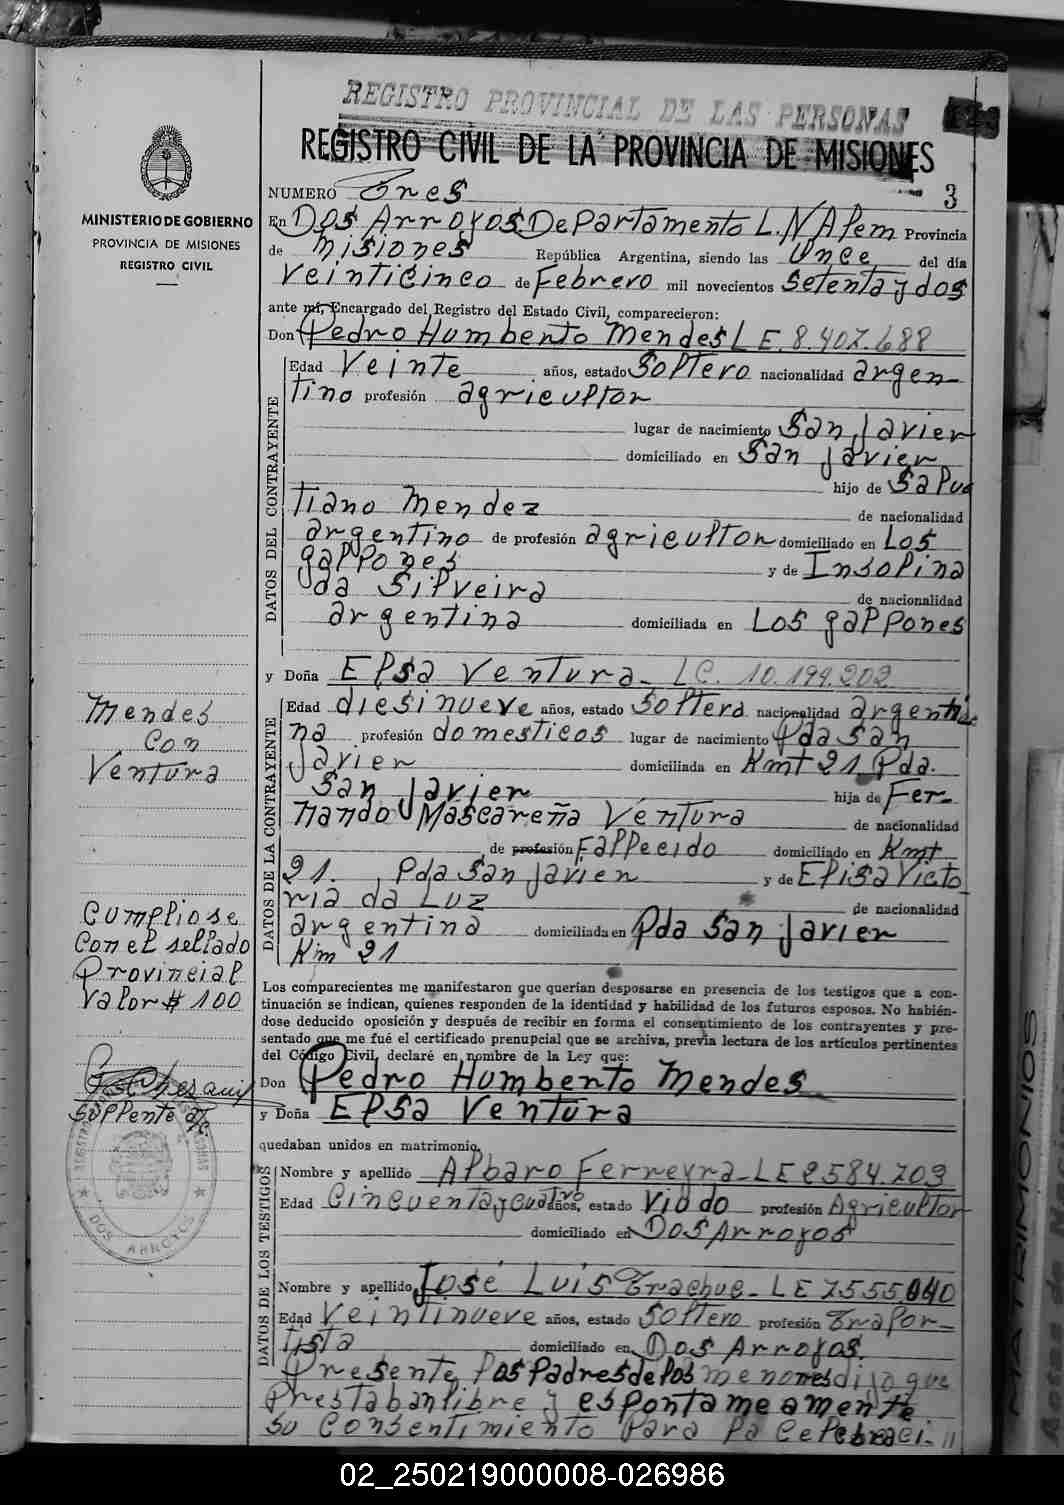 REGISTRO PROVINCIAL DE LAS PERSONAS
REGISTRO CIVIL DE LA PROVINCIA DE MISIONES
MINISTERIO DE GOBIERNO
PROVINCIA DE MISIONES
REGISTRO CIVIL
NUMERO Tres 3
En Dos Arroyos Departamento L.N Alem Provincia
de Misiones República Argentina, siendo las Once del día
veinticinco de Febrero mil novecientos setenta y dos
ante mí, Encargado del Registro del Estado Civil, comparecieron:
Don Pedro Humberto Mendes L E. 8.407.688
DATOS DEL CONTRAYENTE
Edad Veinte años, estado Soltero nacionalidad argen-
tino profesión agricultor
lugar de nacimiento San Javier
domiciliado en San Javier
hijo de Salus
tiano Mendez de nacionalidad
argentino de profesión agricultor domiciliado en Los
gallones y de Insolina
da Silveira de nacionalidad
argentina domiciliada en Los gallones
y Doña Elsa Ventura - LC. 10.194.202
Mendes
con
Ventura
DATOS DE LA CONTRAYENTE
Edad diesinueve años, estado Soltera nacionalidad argenti
na profesión domesticos lugar de nacimiento Pda San
Javier domiciliada en Kmt 21 Pda.
San Javier hija de Fer-
nando Mascareña Ventura de nacionalidad
de profesión Fallecido domiciliado en Kmt
21. Pda San Javier y de Elisa Victo
ria da Luz de nacionalidad
argentina domiciliada en Pda San Javier
Kim 21
Cumpliose
con el sellado
Provincial
valor $ 100
Los comparecientes me manifestaron que querían desposarse en presencia de los testigos que a con-
tinuación se indican, quienes responden de la identidad y habilidad de los futuros esposos. No habién-
dose deducido oposición y después de recibir en forma el consentimiento de los contrayentes y pre-
sentado que me fué el certificado prenupcial que se archiva, previa lectura de los artículos pertinentes
del Código Civil, declaré en nombre de la Ley que:
Don Pedro Humberto Mendes
y Doña Elsa Ventura
quedaban unidos en matrimonio.
Supplente
DOS ARROYOS
DATOS DE LOS TESTIGOS
Nombre y apellido Albaro Ferreyra - LE 2584.703
Edad Cincuenta y cuatro años, estado Viodo profesión Agricultor
domiciliado en Dos Arroyos
Nombre y apellido José Luis Trachue - LE 7555.040
Edad Veintinueve años, estado Soltero profesión Trapor-
tista domiciliado en Dos Arroyos.
Presente los padres de los menores dijo que
prestaban libre y espontameamente
su consentimiento para la celebraci-//
MATRIMONIOS
02_250219000008-026986